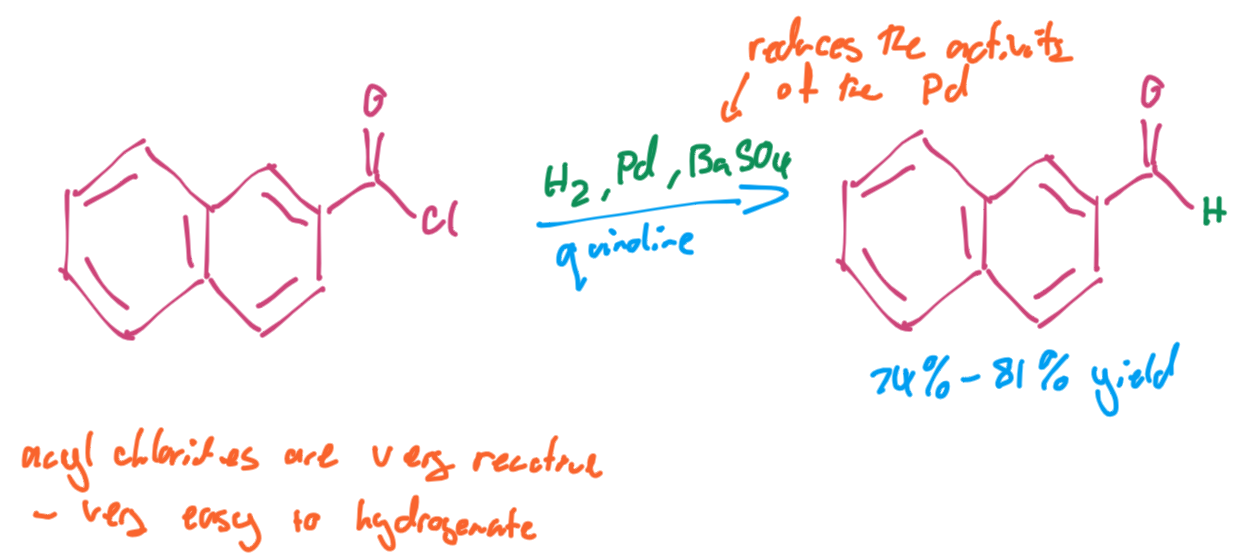 reduces the activity
of the Pd
O
O
H2, Pd, BaSO4
Cl
quinoline
H
74% - 81% yield
acyl chlorides are very reactive
- very easy to hydrogenate